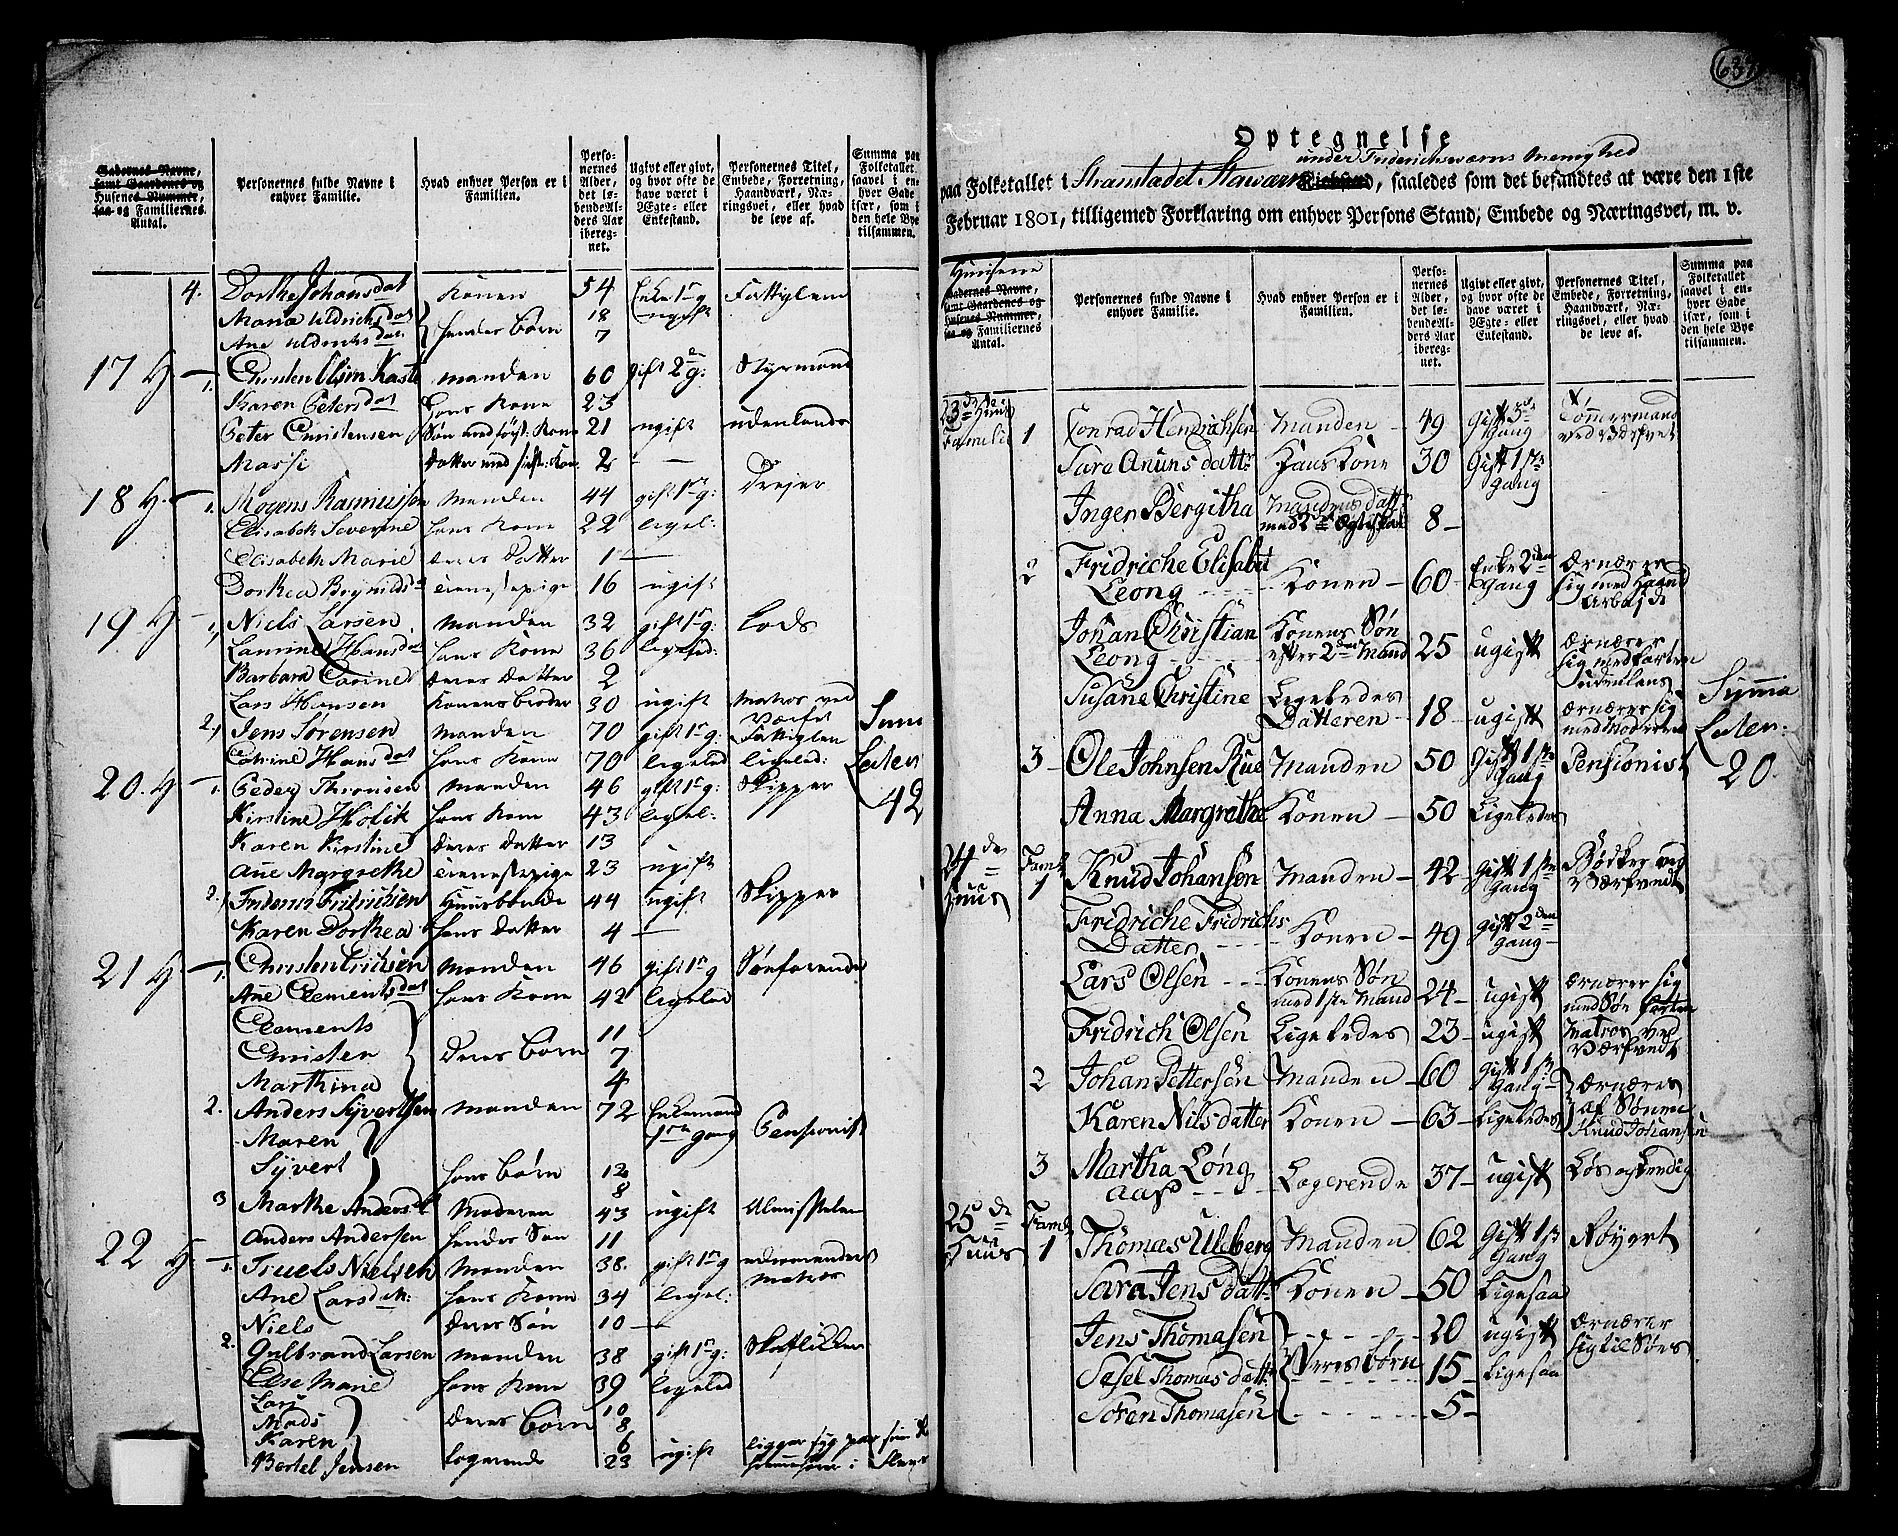 Gadernes Navne, samt Gaardenes og Husenes Nummer, saa og Familiernes Antal.
Personernes fulde Navne i enhver Familie.
Hvad enhver Person er i Familien.
Personernes Alder, det løbendeAlders Aar iberegnet.
Ugivt eller givt, og hvor ofte de have været i Ægte- eller Enkestand.
Personernes Titel, Embede, Forretning, Haandværk, Næringsvei, eller hvad de leve af.
Summa paa Folketallet saavel i enhver Gade især, som i den hele Bye tilsammen.
4. Dorthe Johansdat Konen 54 Enke 1 g Fattiglem
Maria Uldrichsdat hendes børn 18 ugift
Ane Uldrichsdat 7
17 H 1. Manden 60 gift 2 g: Styrmand
Karen Petersdat Hans Kone 23
Peter Christensen Søn med først: Kone 21 ugift udenlands
Massi Datter med 2 —
18 H. 1. Mogens Rasmussen Manden 44 gift 1 g: Drejer
Elisabeth Severine hans Kone 22 ligel:
Elisabeth Marie deres Datter 1 —
Dorthea tienestepige 16 ugift
19 H 1, Niels Larsen Manden 32 gift 1 g: Lods
Laurine Hansdat hans Kone 36 ligeled:
Barbara deres Datter 2
Lars Hansen Konens broder 30 ugift Matros ved Værfet
2, Jens Sørensen Manden 70 gift 1 g: Fattiglem
Hansdat hans Kone 70 ligeled ligeled:
20. H 1. Peder Manden 46 gift 1 g: Skipper
Kirstine Holik hans Kone 43 ligel:
Karen Kirstine Deres Datter 13
Ane Margrethe tienestepige 23 ugift
2. 44 ugift Skipper
Karen Dorthea hans Datter 4 —
42
21 H 1. Manden 46 gift 1 g Søefarende
Ane Clementsdat hans Kone 42 ligeled
Clements 11
Christen Deres børn 7
Marthina 4
2. Anders Syvertsen Manden 72 Enkemand gang Pensionist
Maren
Syvert hans børn 12
8
3 Marthe Andersd Moderen 43 ugift Almisselem
Anders Andersen hendes Søn 11
22 H. 1. Truels Nielsen Manden 38. gift 1 g Matros
Ane Larsdat: hans Kone 34 ligel:
Niels deres Søn 10 —
2. Gulbrand Larsen Manden 38 gift 1 g:
Else Marie hans Kone 39 ligeled
Lars 10
Mads deres børn 8
Karen 6
Bertel Jensen logerende 23 ugift ligger syg
Optegnelse
under Friderichsværns Menighed
paa Folketallet i Strandstædet Staværn Kirkesogn, saaledes som det befandtes at være den 1ste
Februar 1801, tilligemed Forklaring om enhver Persons Stand, Embede og Næringsvei, m. v.
Huusene
Gadernes Navne, samt Gaardenes og Husenes Nummer, saa og Familiernes Antal.
Personernes fulde Navne i enhver Familie.
Hvad enhver Person er i Familien.
Personernes Alder, det løbendeAlders Aar iberegnet.
Ugivt eller givt, og hvor ofte de have været i Ægte- eller Enkestand.
Personernes Titel, Embede, Forretning, Haandværk, Næringsvei, eller hvad de leve af.
Summa paa Folketallet saavel i enhver Gade især, som i den hele Bye tilsammen.
23de Huus Familie 1 Conrad Henrichsen Manden — 49 Gift 3 Gang Tømmermand ved Værfvet
Sara Anunsdattr Hans Kone 30 Gift 1ste Gang
Inger Bergitha Mandens Datt med 2 Ægteskab 8 —
2 Fridriche Elisabet Leong Konen — 60 Enke 2den Gang Ærnærer sig med Haand Arbejde
Johan Christian Leong Konens Søn efter 2den Mand 25 ugift Ærnærer sig med farten udenlans
Susane Christine Ligeledes Datteren — 18 — ugift ærnærer sig med Moderen
3 Ole Johnsen Rue Manden 50 Gift 1ste Gang Pensionist
Anna Margrethe Konen — 50 Ligeledes
Summa
20.
24de Huus Famil 1 Knud Johansen Manden — 42 — Gift 1ste Gang Bødker ved Værfvedt
Fridriche Fridrichs Datter Konen — 49 Gift 2den Gang
Lars Olsen Konens Søn med 1ste Mand 24 — ugift ærnærer sig med Søn farten
Fridrich Olsen Ligeledes 23 — ugift Matros ved Værfvedt
2 Johan Pettersen Manden — 60 Gift 1ste Gang Ærnæres
Karen Nilsdatter Konen — 63 — Ligeledes af Sønen Knud Johansen
3 Martha Long aas Logerende 37 — ugift Løs og Lendig
25de Huus Famil 1 Thomas Uleberg Manden 62 Gift 1ste Gang Røgert
Sara Jensdatt Konen — 50 Ligesaa
Jens Thomasen 20 ugift ærnærer sig til Søes
Sesel Thomasdatt Deres børn 15 — Ligesaa
Soren Thomasen 5 —